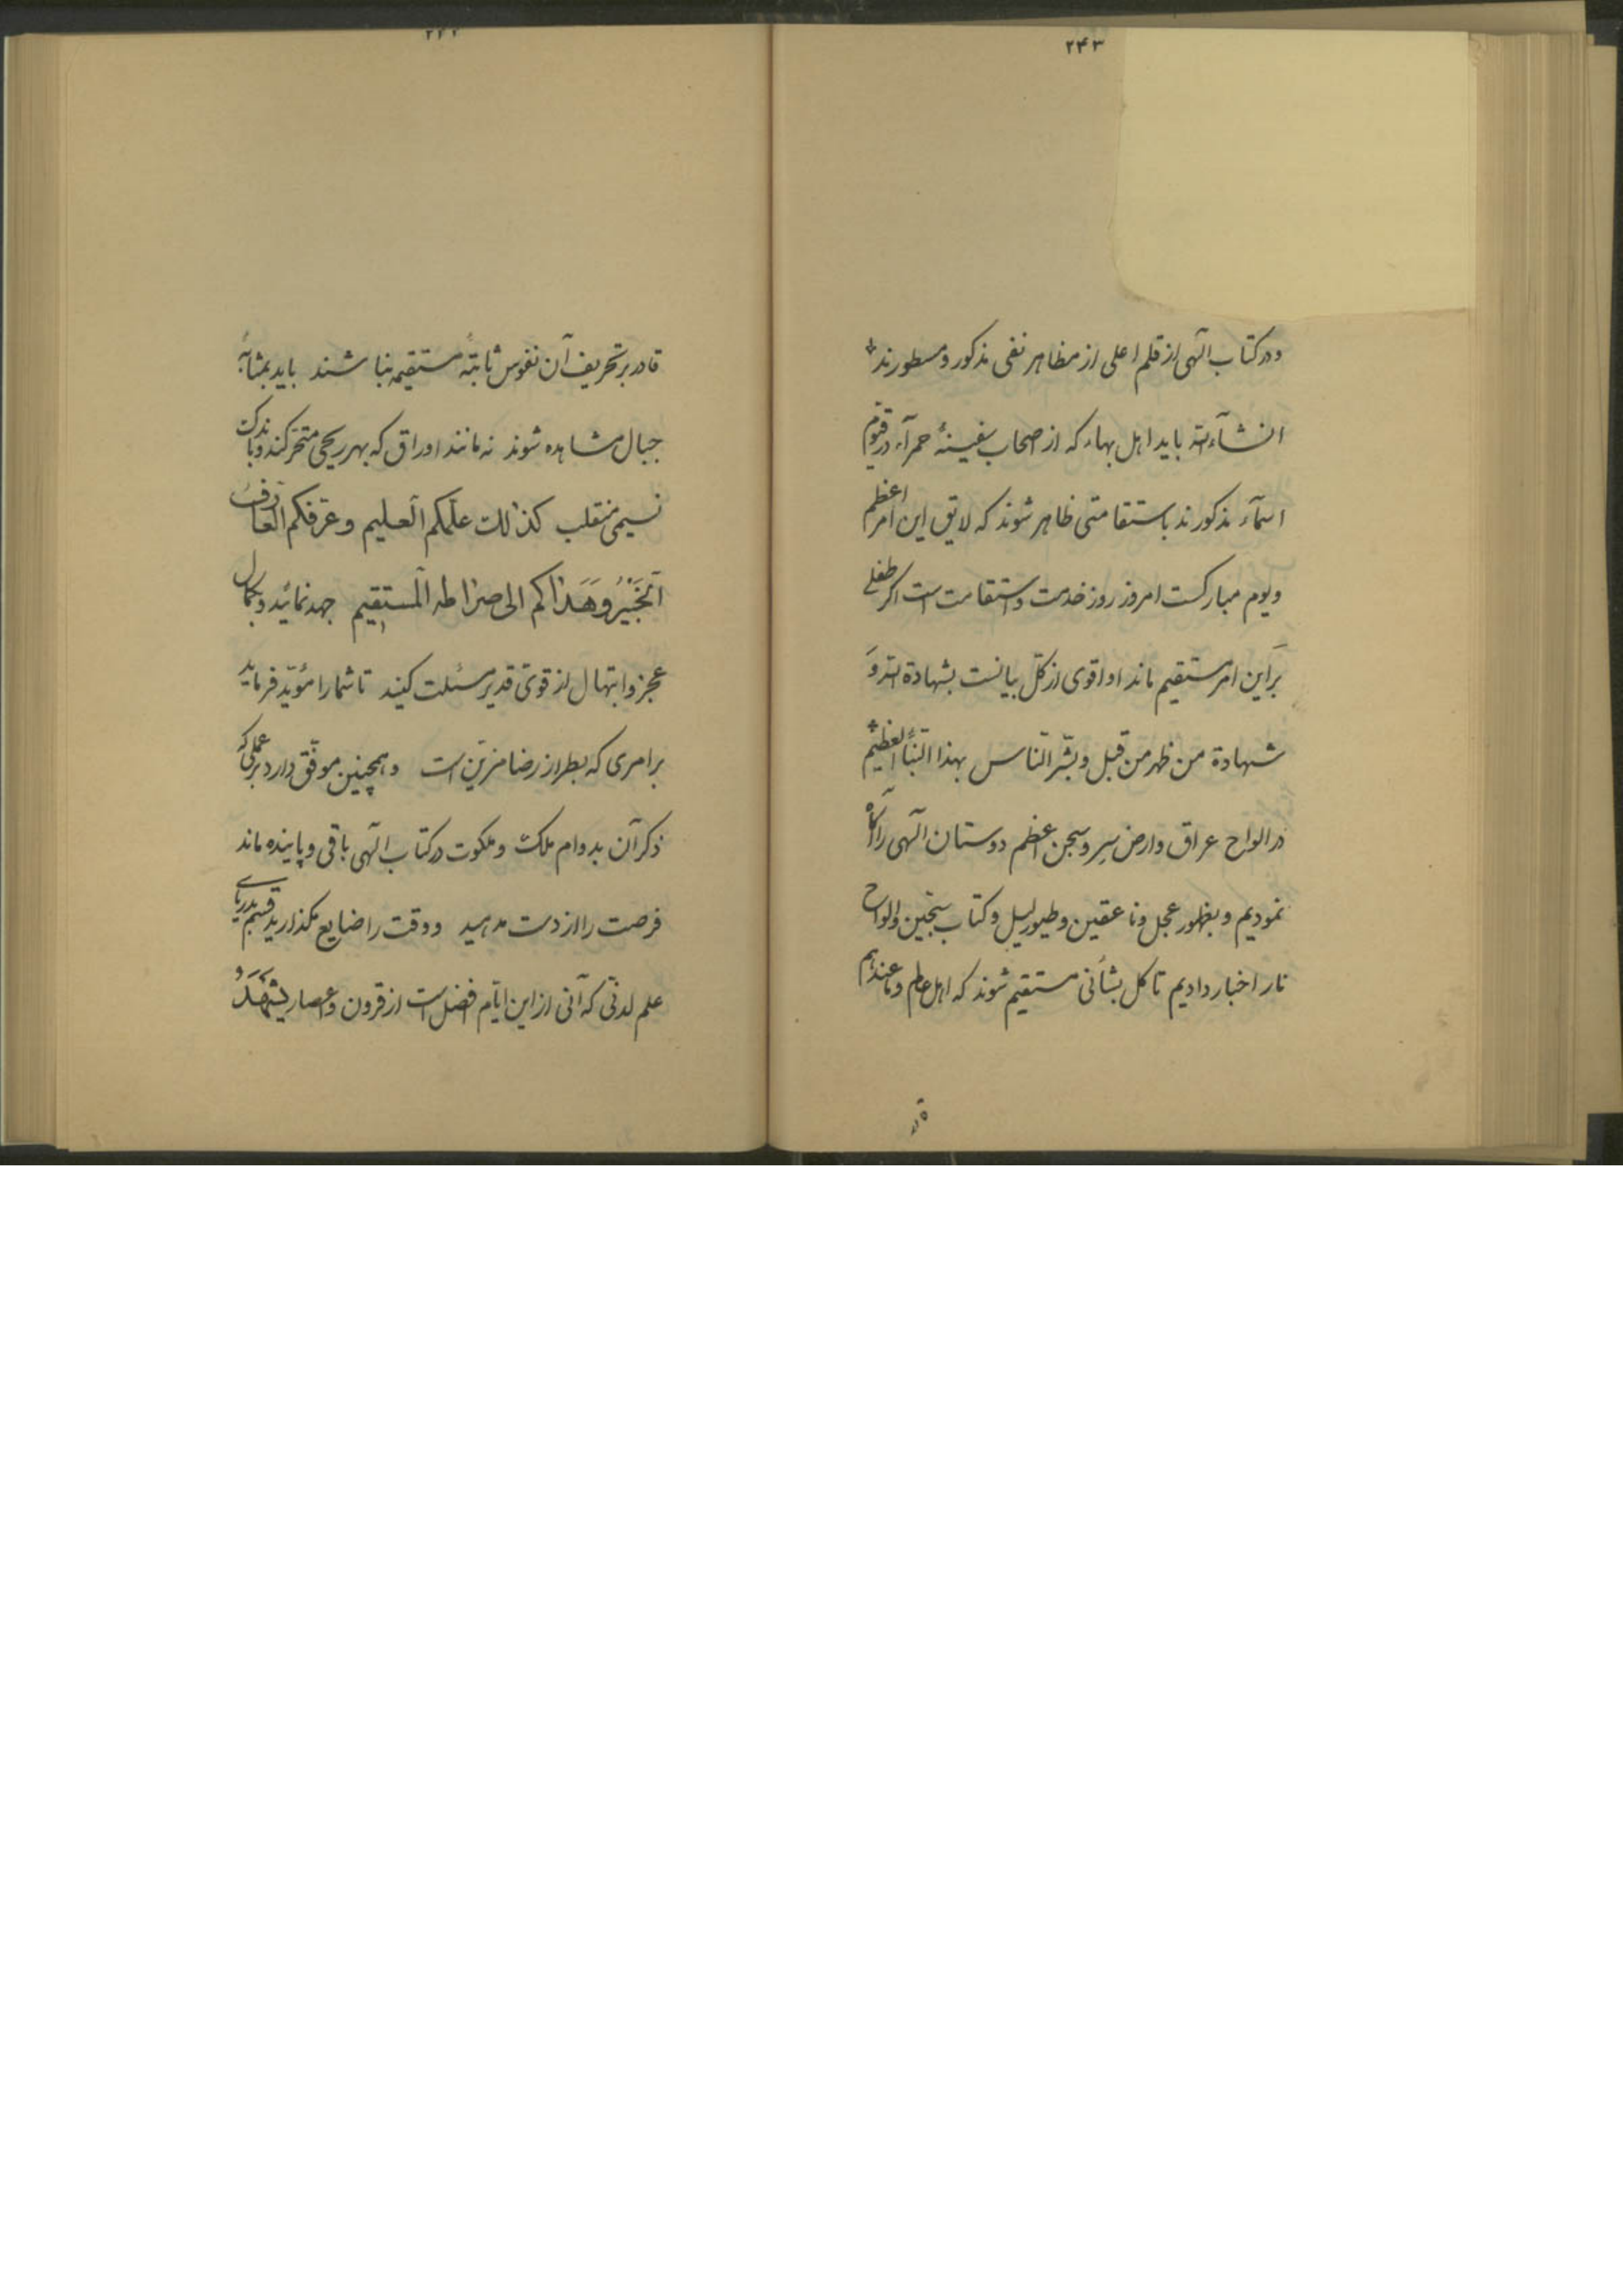 ۲۴۳
و در کتاب الهی از قلم اعلی از مظاهر نفی مذکور و مسطورند
انشآءالله باید اهل بهاء که از اصحاب سفینهٔ حمرآء در قیّوم
اسمآء مذکورند باستقامتی ظاهر شوند که لایق این امر اعظم
و یوم مبارکست امروز روز خدمت و استقامت است اگر طفلی
بر این امر مستقیم ماند او اقوی از کلّ بیانست بشهادة الله و
شهادة من ظهر من قبل و بشّر النّاس بهذا النّبأ العظیم
در الواح عراق و ارض سر و سجن اعظم دوستان الهی را آگاه
نمودیم و بظهور عجل و ناعقین و طیور لیل و کتاب سجّین و الواح
نار اخبار دادیم تا کل بشأنی مستقیم شوند که اهل عالم و ما عندهم
قادر بر تحریف آن نفوس ثابتهٔ مستقیمه نباشند باید بمثابهٔ
جبال مشاهده شوند نه مانند اوراق که بهر ریحی متحرکند و باندک
نسیمی منقلب کذلک علّمکم العلیم و عرّفکم العارف
الخبیر و هداکم الی صراطه المستقیم جهد نمائید و بکمال
عجز و ابتهال از قوی قدیر مسئلت کنید تا شما را مؤیّد فرماید
بر امری که بطراز رضا مزیّن است و همچنین موفّق دارد بر عملی که
ذکر آن بدوام ملک و ملکوت در کتاب الهی باقی و پاینده ماند
فرصت را از دست مدهید و وقت را ضایع مگذارید قسم بدریای
علم لدنّی که آنی از این ایّام افضل است از قرون و اعصار یشهد